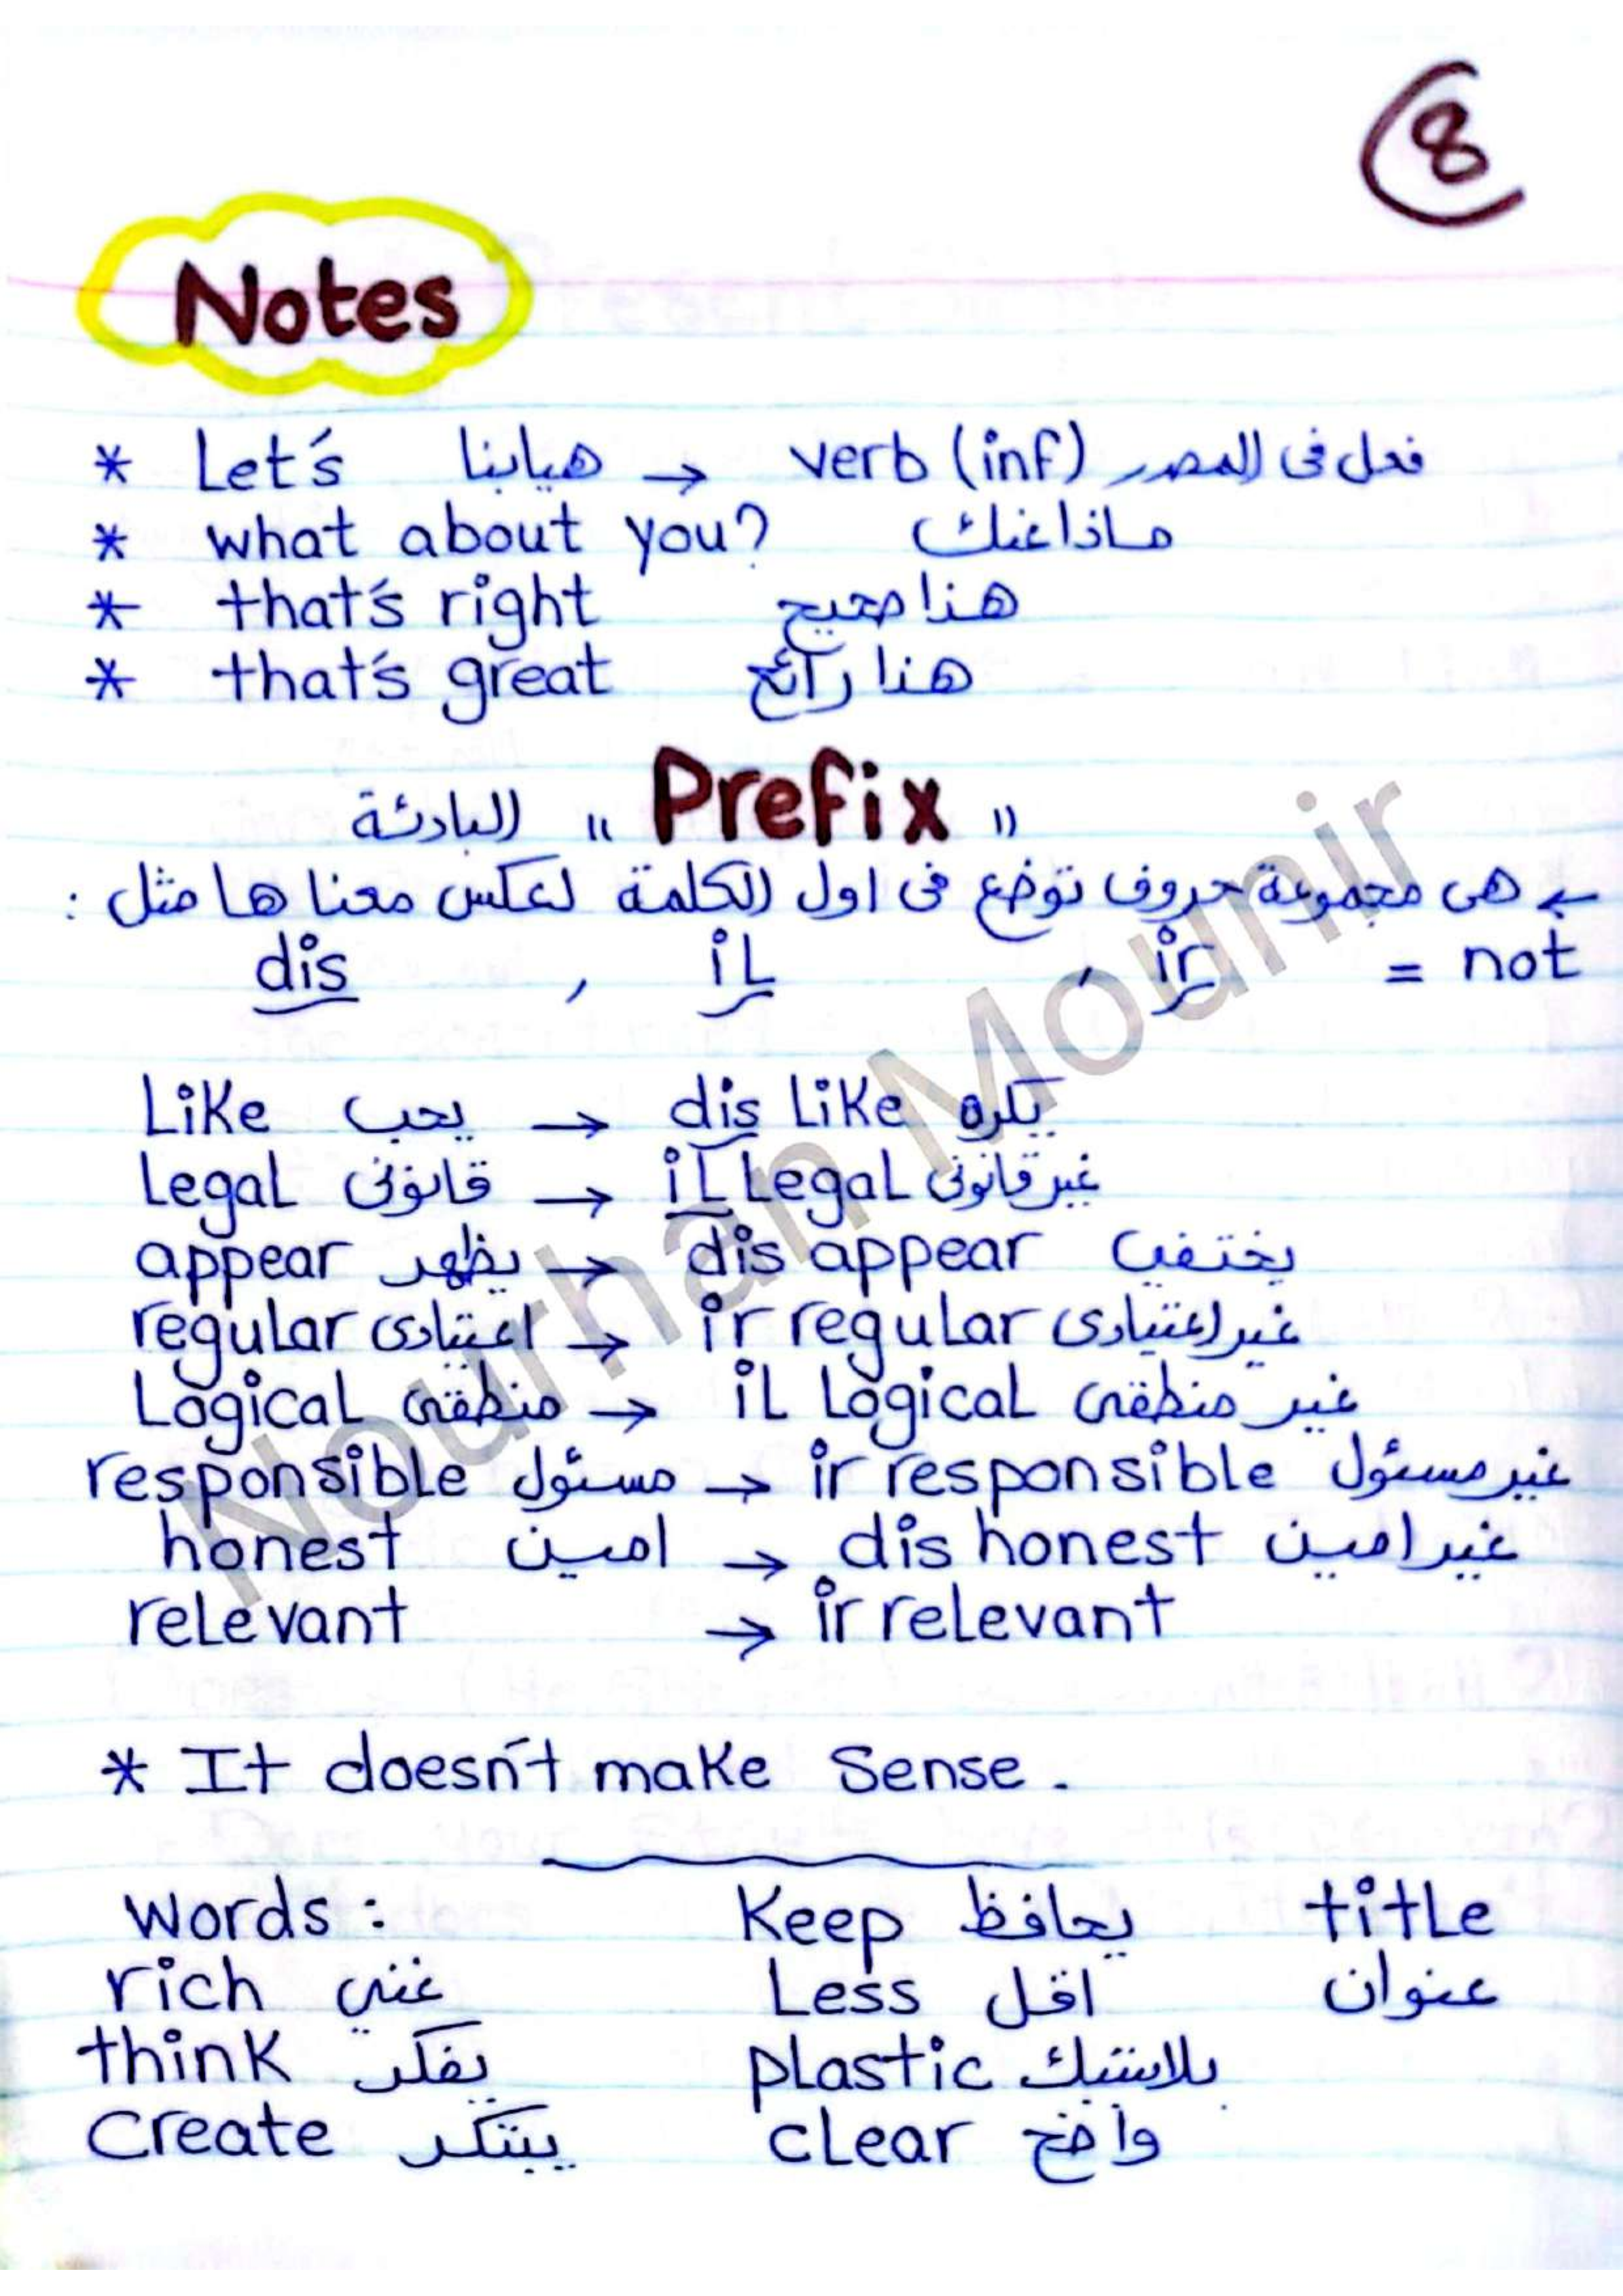 8
Notes
* Let's هيا بنا → verb (inf) فعل فى المصدر
* what about you? ماذا عنك
* that's right هذا صحيح
* that's great هذا رائع
البادئة " Prefix "
← هى مجموعة حروف توضع فى اول الكلمة لعكس معناها مثل :
dis , il , ir = not
Like يحب → dis Like يكره
Legal قانونى → iL Legal غير قانونى
appear يظهر → dis appear يختفى
regular اعتيادى → ir regular غير اعتيادى
Logical منطقى → iL Logical غير منطقى
responsible مسئول → ir responsible غير مسئول
honest امين → dis honest غير امين
relevant → ir relevant
* It doesn't make Sense .
words : Keep يحافظ title
rich غني Less اقل عنوان
think يفكر plastic بلاستيك
Create يبتكر clear واضح
Nourhan Mounir